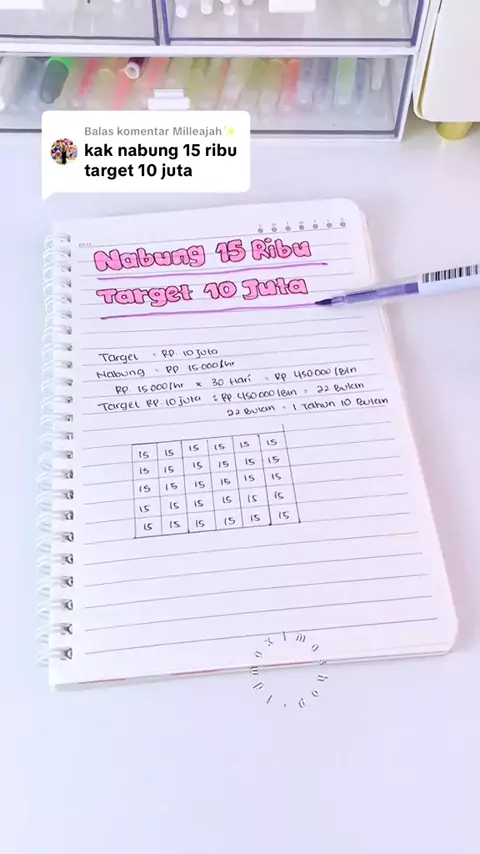 Balas komentar Milleajah✨
kak nabung 15 ribu
target 10 juta
Nabung 15 Ribu
Target 10 Juta
Target : Rp. 10 juta
Nabung : Rp 15.000/hr
Rp. 15.000/hr x 30 Hari = Rp 450.000/Bln
Target Rp. 10 juta : Rp 450.000/Bln = 22 Bulan
22 Bulan = 1 Tahun 10 Bulan
15 15 15 15 15 15
15 15 15 15 15 15
15 15 15 15 15 15
15 15 15 15 15 15
15 15 15 15 15 15